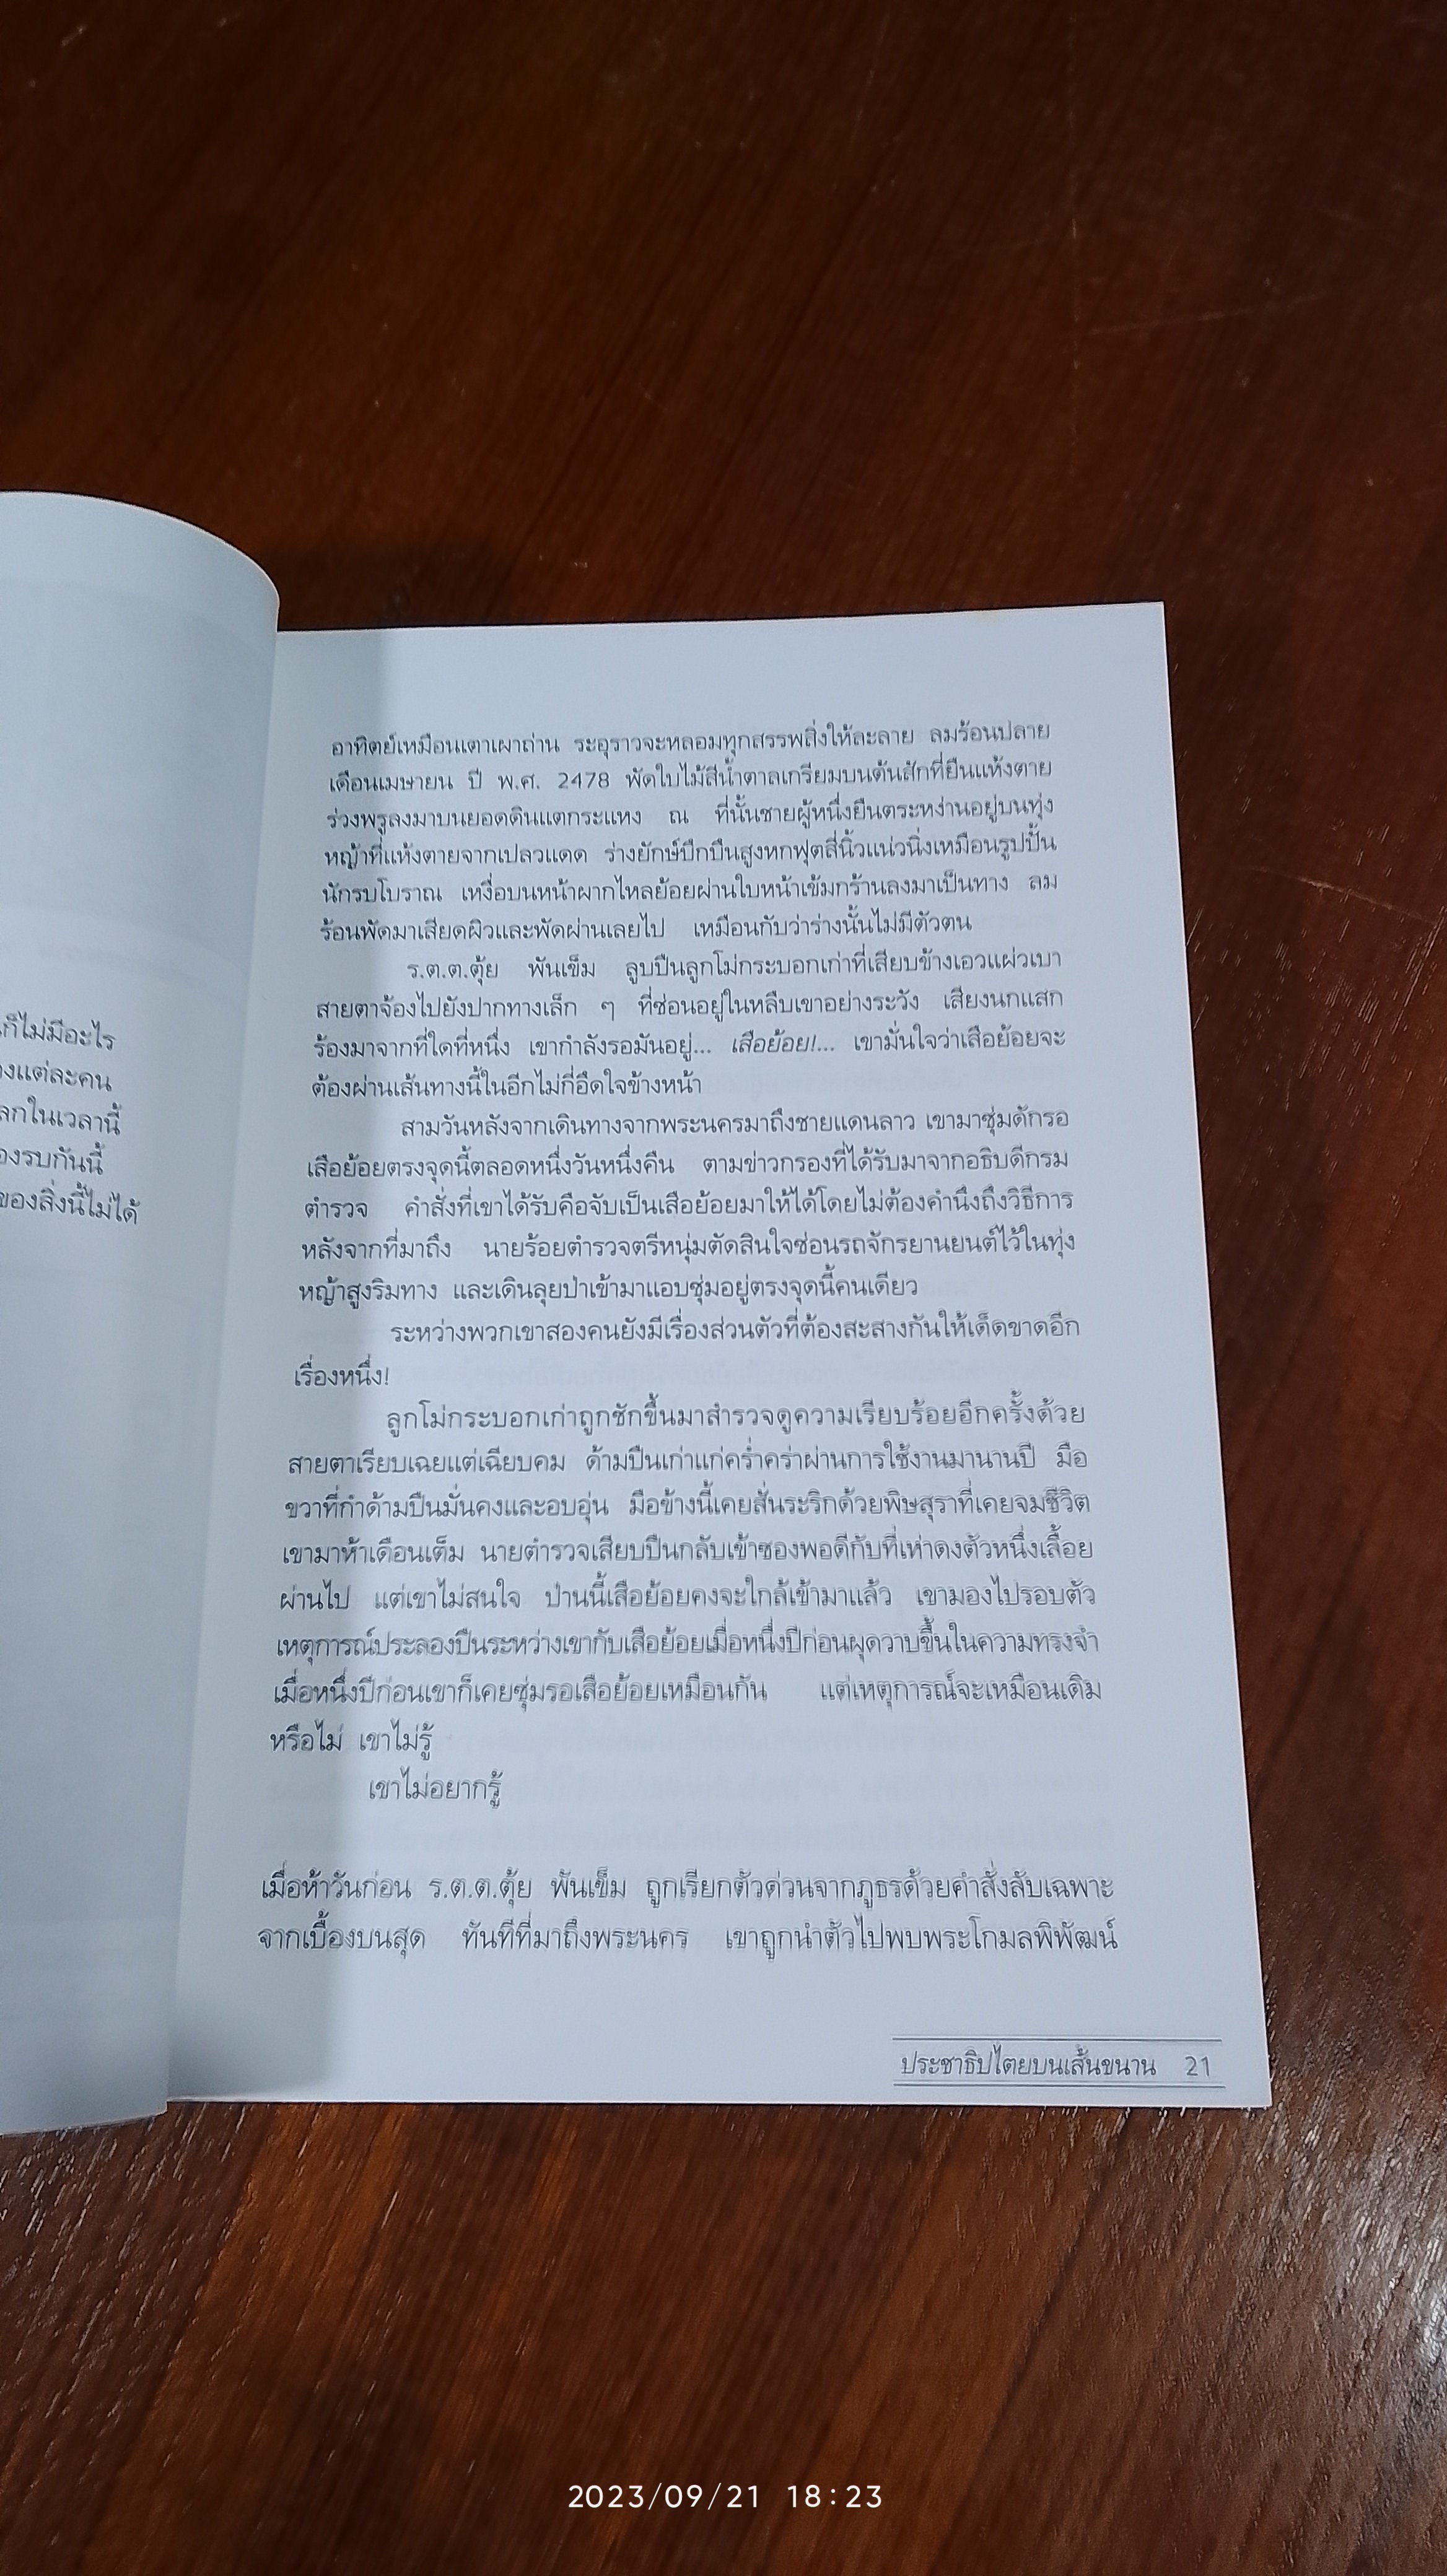 ก็ไม่มีอะไร
งแต่ละคน
ลกในเวลานี้
องรบกันนี้
ของสิ่งนี้ไม่ได้
อาทิตย์เหมือนเตาเผาถ่าน ระอุราวจะหลอมทุกสรรพสิ่งให้ละลาย ลมร้อนปลาย
เดือนเมษายน ปี พ.ศ. 2478 พัดใบไม้สีน้ำตาลเกรียมบนต้นสักที่ยืนแห้งตาย
ร่วงพรูลงมาบนยอดดินแตกระแหง ณ ที่นั้นชายผู้หนึ่งยืนตระหง่านอยู่บนทุ่ง
หญ้าที่แห้งตายจากเปลวแดด ร่างยักษ์ปักปืนสูงหกฟุตสี่นิ้วแน่วนิ่งเหมือนรูปปั้น
นักรบโบราณ เหงื่อบนหน้าผากไหลย้อยผ่านใบหน้าเข้มกร้านลงมาเป็นทาง ลม
ร้อนพัดมาเสียดผิวและพัดผ่านเลยไป เหมือนกับว่าร่างนั้นไม่มีตัวตน
ร.ต.ต.ตุ้ย พันเข็ม ลูบปืนลูกโม่กระบอกเก่าที่เสียบข้างเอวแผ่วเบา
สายตาจ้องไปยังปากทางเล็ก ๆ ที่ซ่อนอยู่ในหลืบเขาอย่างระวัง เสียงนกแสก
ร้องมาจากที่ใดที่หนึ่ง เขากำลังรอมันอยู่... เสือย้อย!... เขามั่นใจว่าเสือย้อยจะ
ต้องผ่านเส้นทางนี้ในอีกไม่กี่อึดใจข้างหน้า
สามวันหลังจากเดินทางจากพระนครมาถึงชายแดนลาว เขามาซุ่มดักรอ
เสือย้อยตรงจุดนี้ตลอดหนึ่งวันหนึ่งคืน ตามข่าวกรองที่ได้รับมาจากอธิบดีกรม
ตำรวจ คำสั่งที่เขาได้รับคือจับเป็นเสือย้อยมาให้ได้โดยไม่ต้องคำนึงถึงวิธีการ
หลังจากที่มาถึง นายร้อยตำรวจตรีหนุ่มตัดสินใจซ่อนรถจักรยานยนต์ไว้ในทุ่ง
หญ้าสูงริมทาง และเดินลุยป่าเข้ามาแอบซุ่มอยู่ตรงจุดนี้คนเดียว
ระหว่างพวกเขาสองคนยังมีเรื่องส่วนตัวที่ต้องสะสางกันให้เด็ดขาดอีก
เรื่องหนึ่ง!
ลูกโม่กระบอกเก่าถูกชักขึ้นมาสำรวจดูความเรียบร้อยอีกครั้งด้วย
สายตาเรียบเฉยแต่เฉียบคม ด้ามปืนเก่าแก่คร่ำคร่าผ่านการใช้งานมานานปี มือ
ขวาที่กำด้ามปืนมั่นคงและอบอุ่น มือข้างนี้เคยสั่นระริกด้วยพิษสุราที่เคยจมชีวิต
เขามาห้าเดือนเต็ม นายตำรวจเสียบปืนกลับเข้าซองพอดีกับที่เห่าดงตัวหนึ่งเลื้อย
ผ่านไป แต่เขาไม่สนใจ ป่านนี้เสือย้อยคงจะใกล้เข้ามาแล้ว เขามองไปรอบตัว
เหตุการณ์ประลองปืนระหว่างเขากับเสือย้อยเมื่อหนึ่งปีก่อนผุดวาบขึ้นในความทรงจำ
เมื่อหนึ่งปีก่อนเขาก็เคยซุ่มรอเสือย้อยเหมือนกัน แต่เหตุการณ์จะเหมือนเดิม
หรือไม่ เขาไม่รู้
เขาไม่อยากรู้
เมื่อห้าวันก่อน ร.ต.ต.ตุ้ย พันเข็ม ถูกเรียกตัวด่วนจากภูธรด้วยคำสั่งลับเฉพาะ
จากเบื้องบนสุด ทันทีที่มาถึงพระนคร เขาถูกนำตัวไปพบพระโกมลพิพัฒน์
ประชาธิปไตยบนเส้นขนาน 21
2023/09/21 18:23